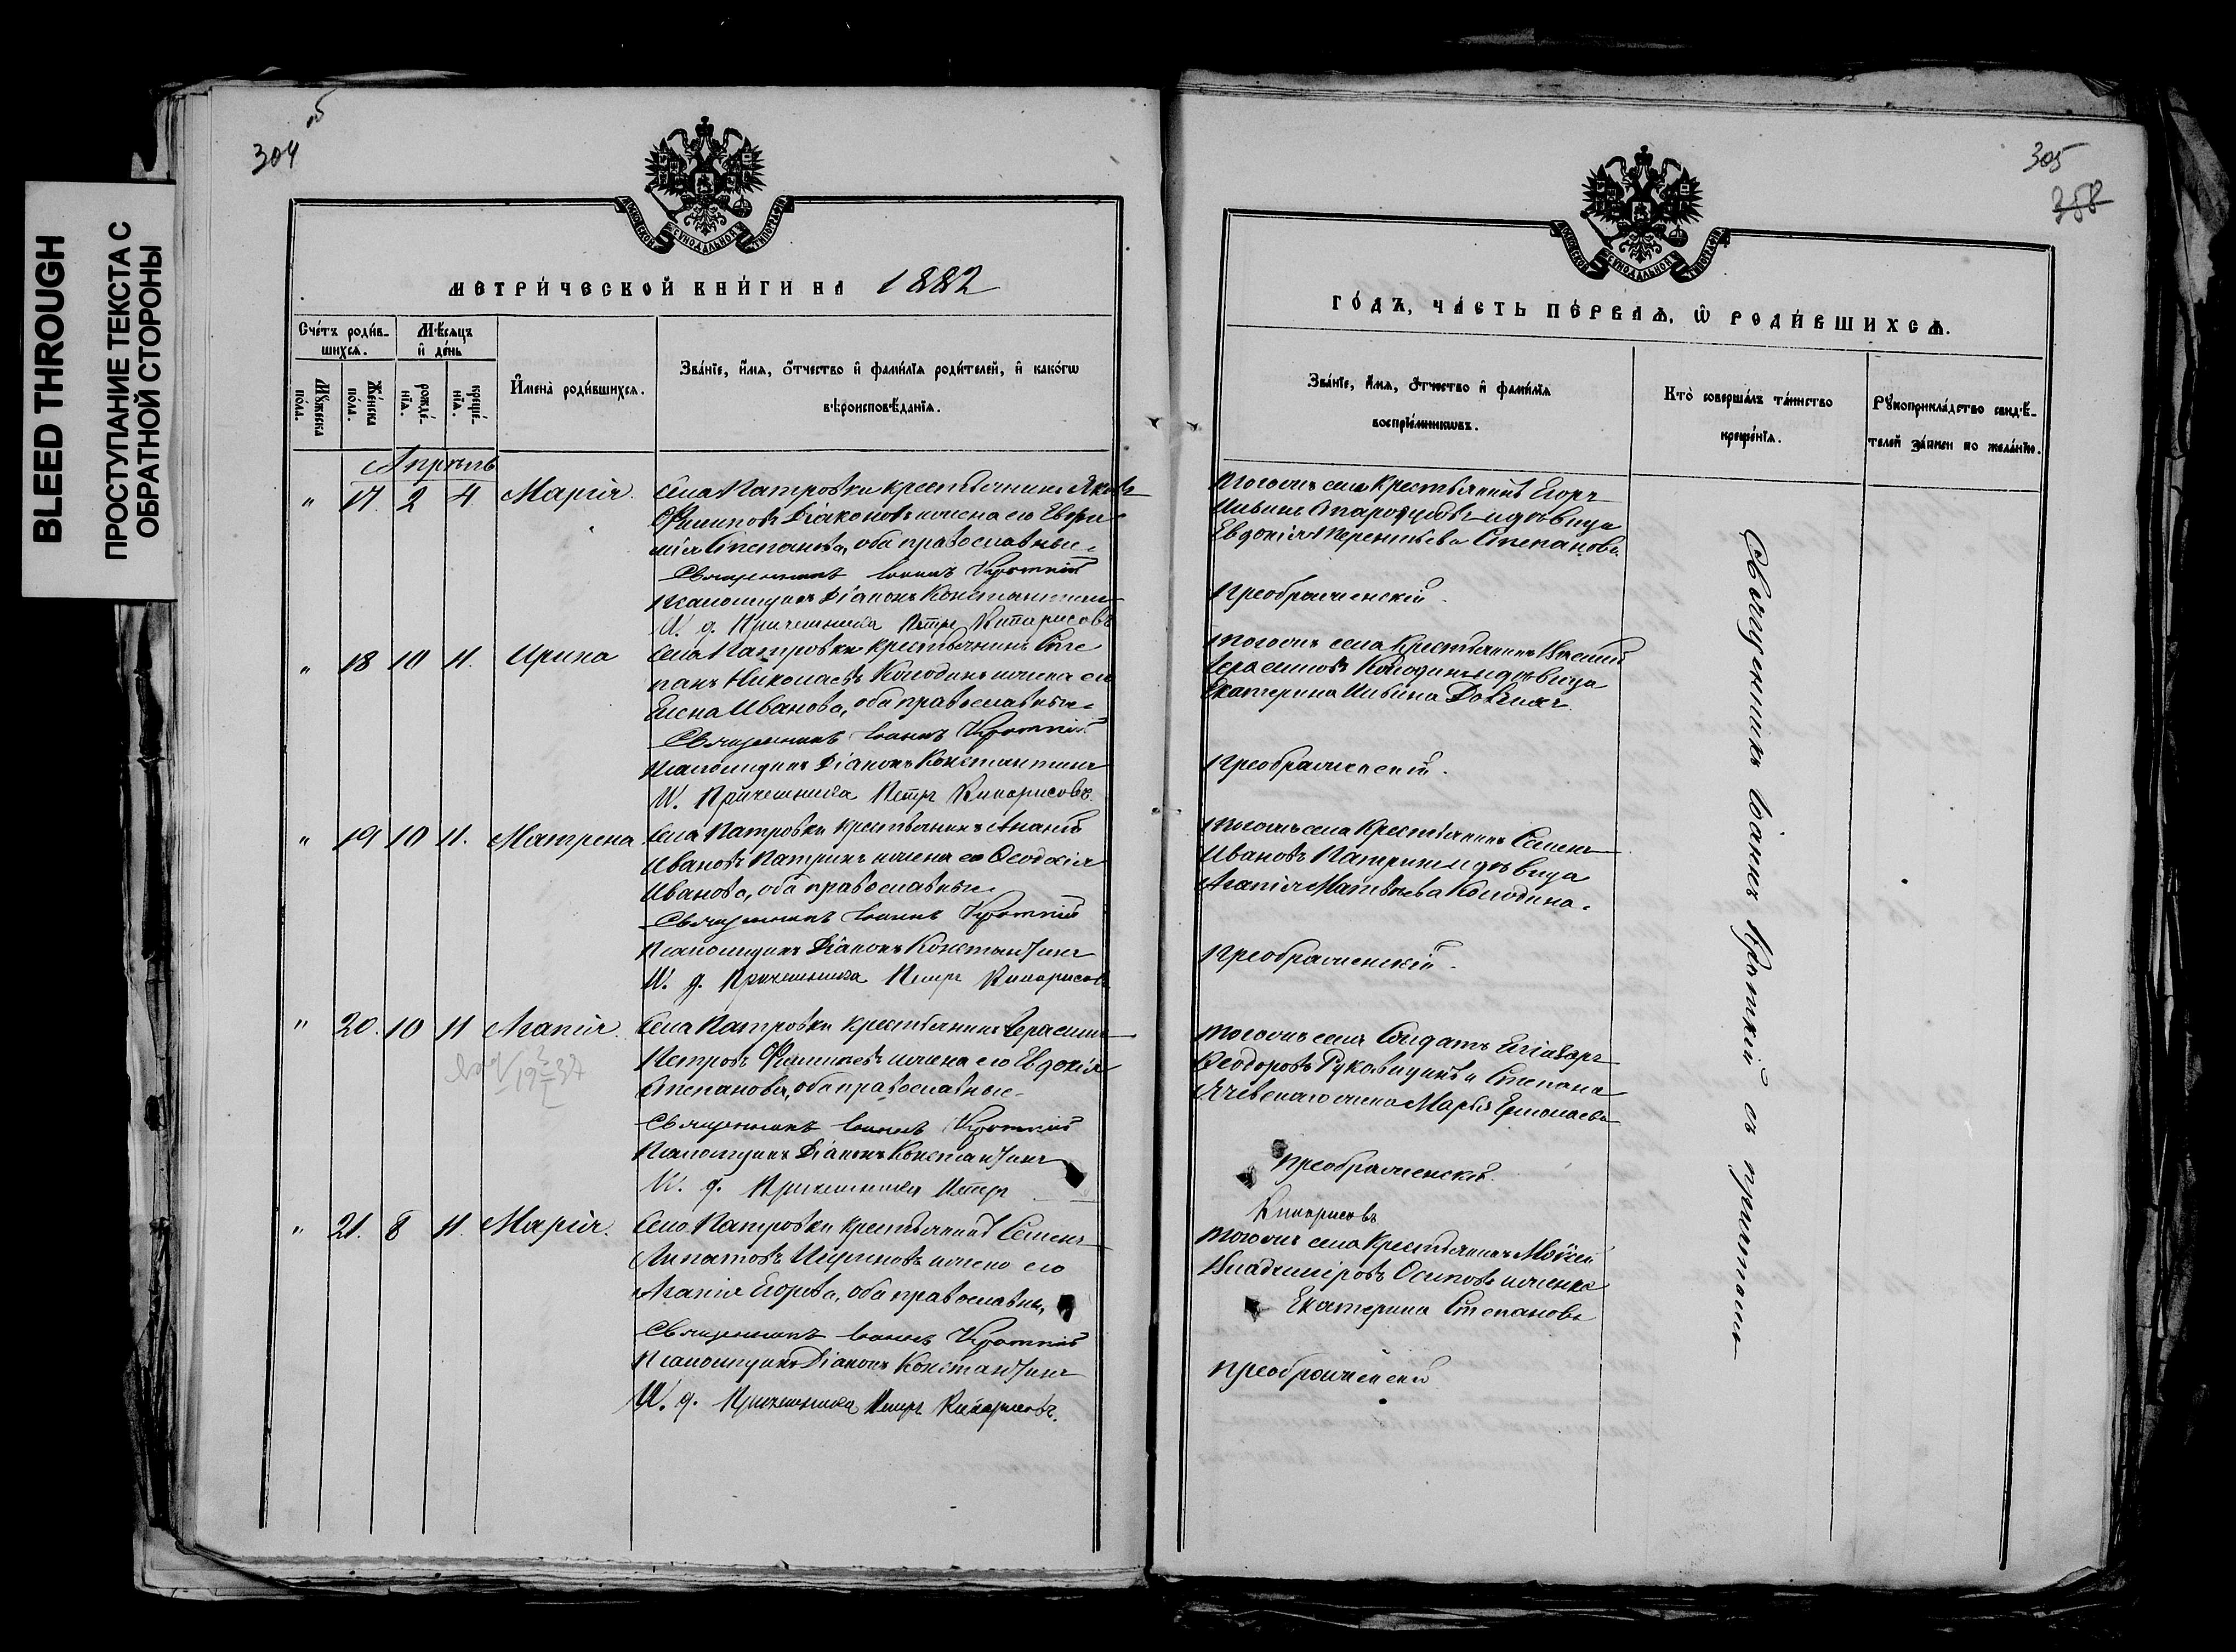 BLEED THROUGH
ПРОСТУПАНИЕ ТЕКСТА С
ОБРАТНОЙ СТОРОНЫ
304
МОСКОВСКОЙ СѴНОДАЛЬНОЙ ТИПОГРАФІИ
МЕТРИ́ЧЕСКОЙ КНИ́ГИ НА 1882
Сче́тъ роди́в-
шихся.
Мѣ́сяцъ
и҆ де́нь
Мꙋ́жеска
пола.
Же́нска
по́ла.
рожде́-
нїѧ.
креще́-
нїѧ.
И҆мена̀ роди́вшихся.
Зва́нїе, и҆́мѧ, ѻ҆́тчество и҆ фами́лїѧ роди́телей, и҆ како́гѡ
вѣроисповѣ́данїѧ.
Апрѣль
" 17. 2 4 Марія. Села Патровки крестьянинъ Яковъ
Филиповъ Діаконовъ и жена его Евфи
мія Степанова, оба православные.
Священникъ Іоаннъ Кроткій
Псаломщикъ Діаконъ Константинъ
И. д. Причетника Петръ Кипарисовъ
" 18 10 11. Ирина Села Патровки крестьянинъ Сте
панъ Николаевъ Колодинъ и жена его
Елена Иванова, оба православные.
Священникъ Іоаннъ Кроткій
Псаломщикъ Діаконъ Константинъ
И. Причетника Петръ Кипарисовъ.
" 19 10 11. Матрена Села Патровки крестьянинъ Ананій
Ивановъ Патринъ и жена его Ѳеодосія
Иванова, оба православные.
Священникъ Іоаннъ Кроткій
Псаломщикъ Діаконъ Константинъ
И. д. Причетника Петръ Кипарисовъ
" 20. 10 11 Агапія. Села Патровки крестьянинъ Герасимъ
Петровъ и жена его Евдокія
Степанова, оба православные.
Священникъ Іоаннъ Кроткій
Псаломщикъ Діаконъ Константинъ
И. д. Причетника Петръ
" 21. 8 11. Марія. Села Патровки крестьянинъ Семенъ
Липатовъ и жена его
Агапія Егорова, оба православны,
Священникъ Іоаннъ Кроткій
Псаломщикъ Діаконъ Константинъ
И. д. Причетника Петръ Кипарисовъ.
305
358
МОСКОВСКОЙ СѴНОДАЛЬНОЙ ТИПОГРАФІИ
ГО́ДЪ, ЧА́СТЬ ПЕ́РВАѦ, Ѡ҆ РОДИ́ВШИХСѦ.
Зва́нїе, и҆́мѧ, ѻ҆́тчество и҆ фами́лїѧ
воспрїе́мникѡвъ.
Кто̀ соверша́лъ та́инство
креще́нїѧ.
Рꙋкоприкла́дство свидѣ́-
телей за́писи по жела́нїю.
Тогоже села Крестьянинъ Егоръ
Ильинъ и дѣвица
Евдокія Степанова
Преображенскій.
Тогоже села Крестьянинъ Василій
Герасимовъ Колодинъ и дѣвица
Екатерина Ильина
Преображенскій.
Тогоже села Крестьянинъ Семенъ
Ивановъ Патринъ и дѣвица
Агапія Матвѣева Колодина.
Преображенскій.
Тогоже села Солдатъ
Ѳеодоровъ Рукавицинъ и Степана
жена Марія Ермолаева
Преображенскій.
Кипарисовъ
Тогоже села Крестьянинъ Моѵсей
Владиміровъ Осиповъ и женка
Екатерина Степанова
Преображенскій
Священникъ Іоаннъ Кроткій съ причтомъ